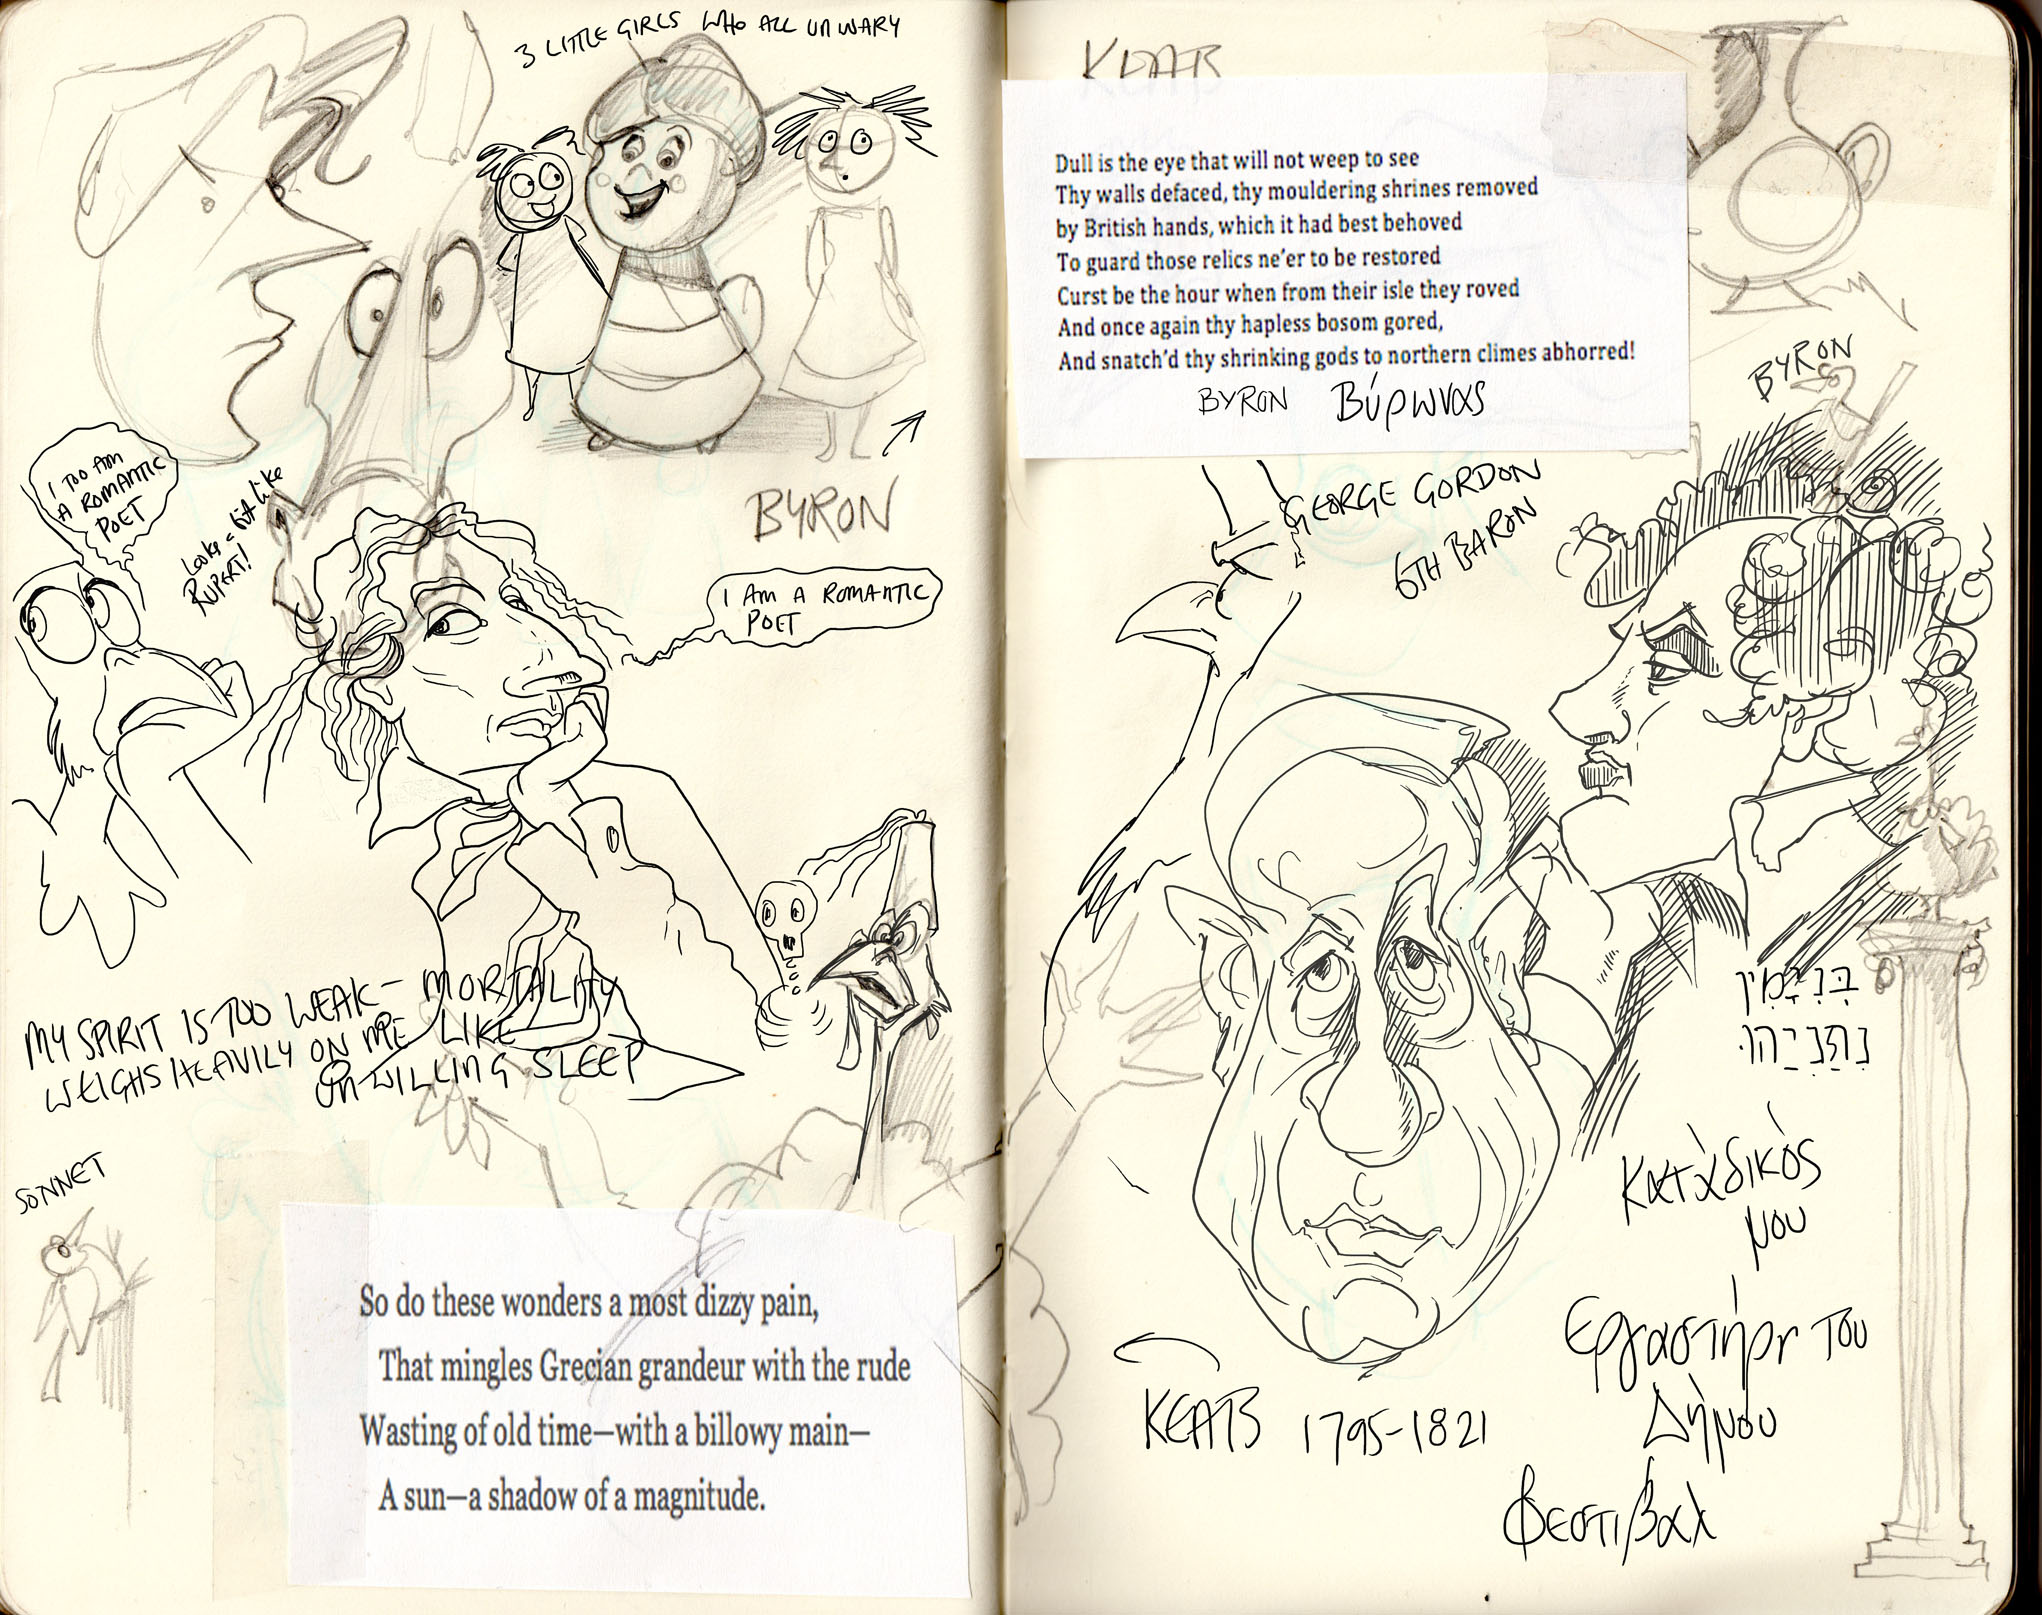 3 LITTLE GIRLS WHO ALL UNWARY
I TOO AM
A ROMANTIC
POET
Looks a bit like
RUPERT!
BYRON
I AM A ROMANTIC
POET
MY SPIRIT IS TOO WEAK— MORTALITY
WEIGHS HEAVILY ON ME LIKE
UNWILLING SLEEP
SONNET
So do these wonders a most dizzy pain,
That mingles Grecian grandeur with the rude
Wasting of old time—with a billowy main—
A sun—a shadow of a magnitude.
KEATS
Dull is the eye that will not weep to see
Thy walls defaced, thy mouldering shrines removed
by British hands, which it had best behoved
To guard those relics ne'er to be restored
Curst be the hour when from their isle they roved
And once again thy hapless bosom gored,
And snatch'd thy shrinking gods to northern climes abhorred!
BYRON Βύρωνας
BYRON
GEORGE GORDON
6TH BARON
בִּנְיָמִין
נְתַנְיָהוּ
Κατάδικός
μου
Εργαστήρι του
Δήμου
Φεστιβαλ
KEATS 1795-1821